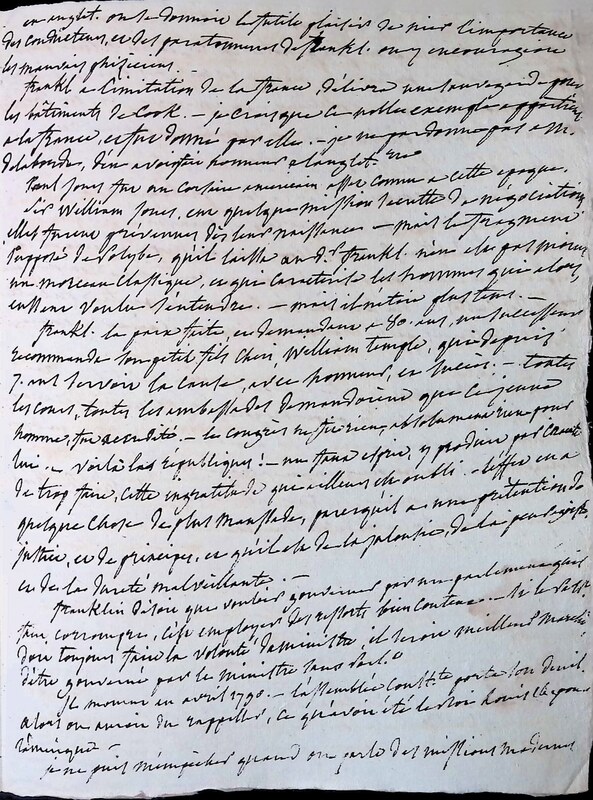 en anglet. on se donnoit le futile plaisir de nier l'importance
des conducteurs, et des paratonnerres de frankl. on y encourageoit
les mauvais phisiciens.
frankl. a l'imitation de la france, délivre une sauvegarde pour
les bâtiments de Cook. - je crois que ce noble exemple appartient
a la france, et fut donné par elle. - je ne pardonne pas a M.
delaborde, d'en avoir fait honneur a l'anglet.
Paul Jones fut un corsaire americain assez connu a cette epoque.
Sir William Jones, eut quelque mission secrette de négociation
elles furent prévenues dès leur naissance - mais le fragment
supposé de Polybe, qu'il laissa au Dr. frankl. n'en est pas moins
un morceau classique, et qui caracterise les hommes qui alors
eussent voulu s'entendre. - mais il n'etoit plus tems. -
frankl. la paix faite, et demandant a 80. ans, un successeur
recommanda son petit fils cheri, William temple, qui depuis
7. ans servoit la cause, avec honneur, et succès. - toutes
les cours, toutes les ambassades demandoient que ce jeune
homme, fut accrédité. - le congrès ne fit rien, absolument rien pour
lui. - voilà les républiques! - un faux esprit, y produit par crainte
de trop faire, cette ingratitude qui ailleurs est oubli. - l'effet en a
quelque chose de plus maussade, parcequ'il a une prétention de
justice, et de principes, et qu'il est de la jalousie, de la peur
et de la dureté malveillante. -
franklin disoit que vouloir gouverner par un parlement qu'il
faut corrompre, c'est employer des ressorts bien couteux - si le
doit toujours faire la volonté du ministre, il seroit meilleur marché
d'être gouverné par le ministre sans parl.
Il mourut en avril 1790. - l'assemblée constte. porta son deuil.
alors on auroit du rappeller, ce qu'avoit été le roi Louis 16 pour
l'amérique -
je ne puis m'empêcher quand on parle des missions modernes